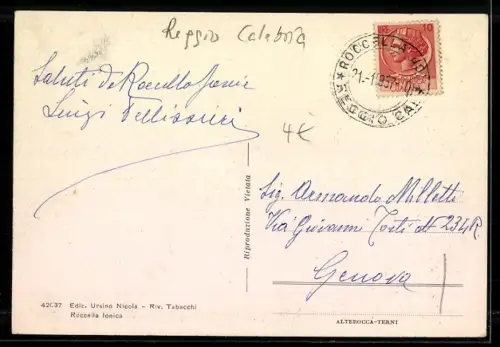 Reggio Calabria
ROCCELLA IO
REGGIO CAL
10
Saluti da Roccella Jonica
Luigi
4€
Riproduzione Vietata
Sig. Armando Milletti
Via Giovanni Torti N° 234R
Genova
42037 Ediz. Ursino Nicola - Riv. Tabacchi
Roccella Ionica
ALTEROCCA-TERNI